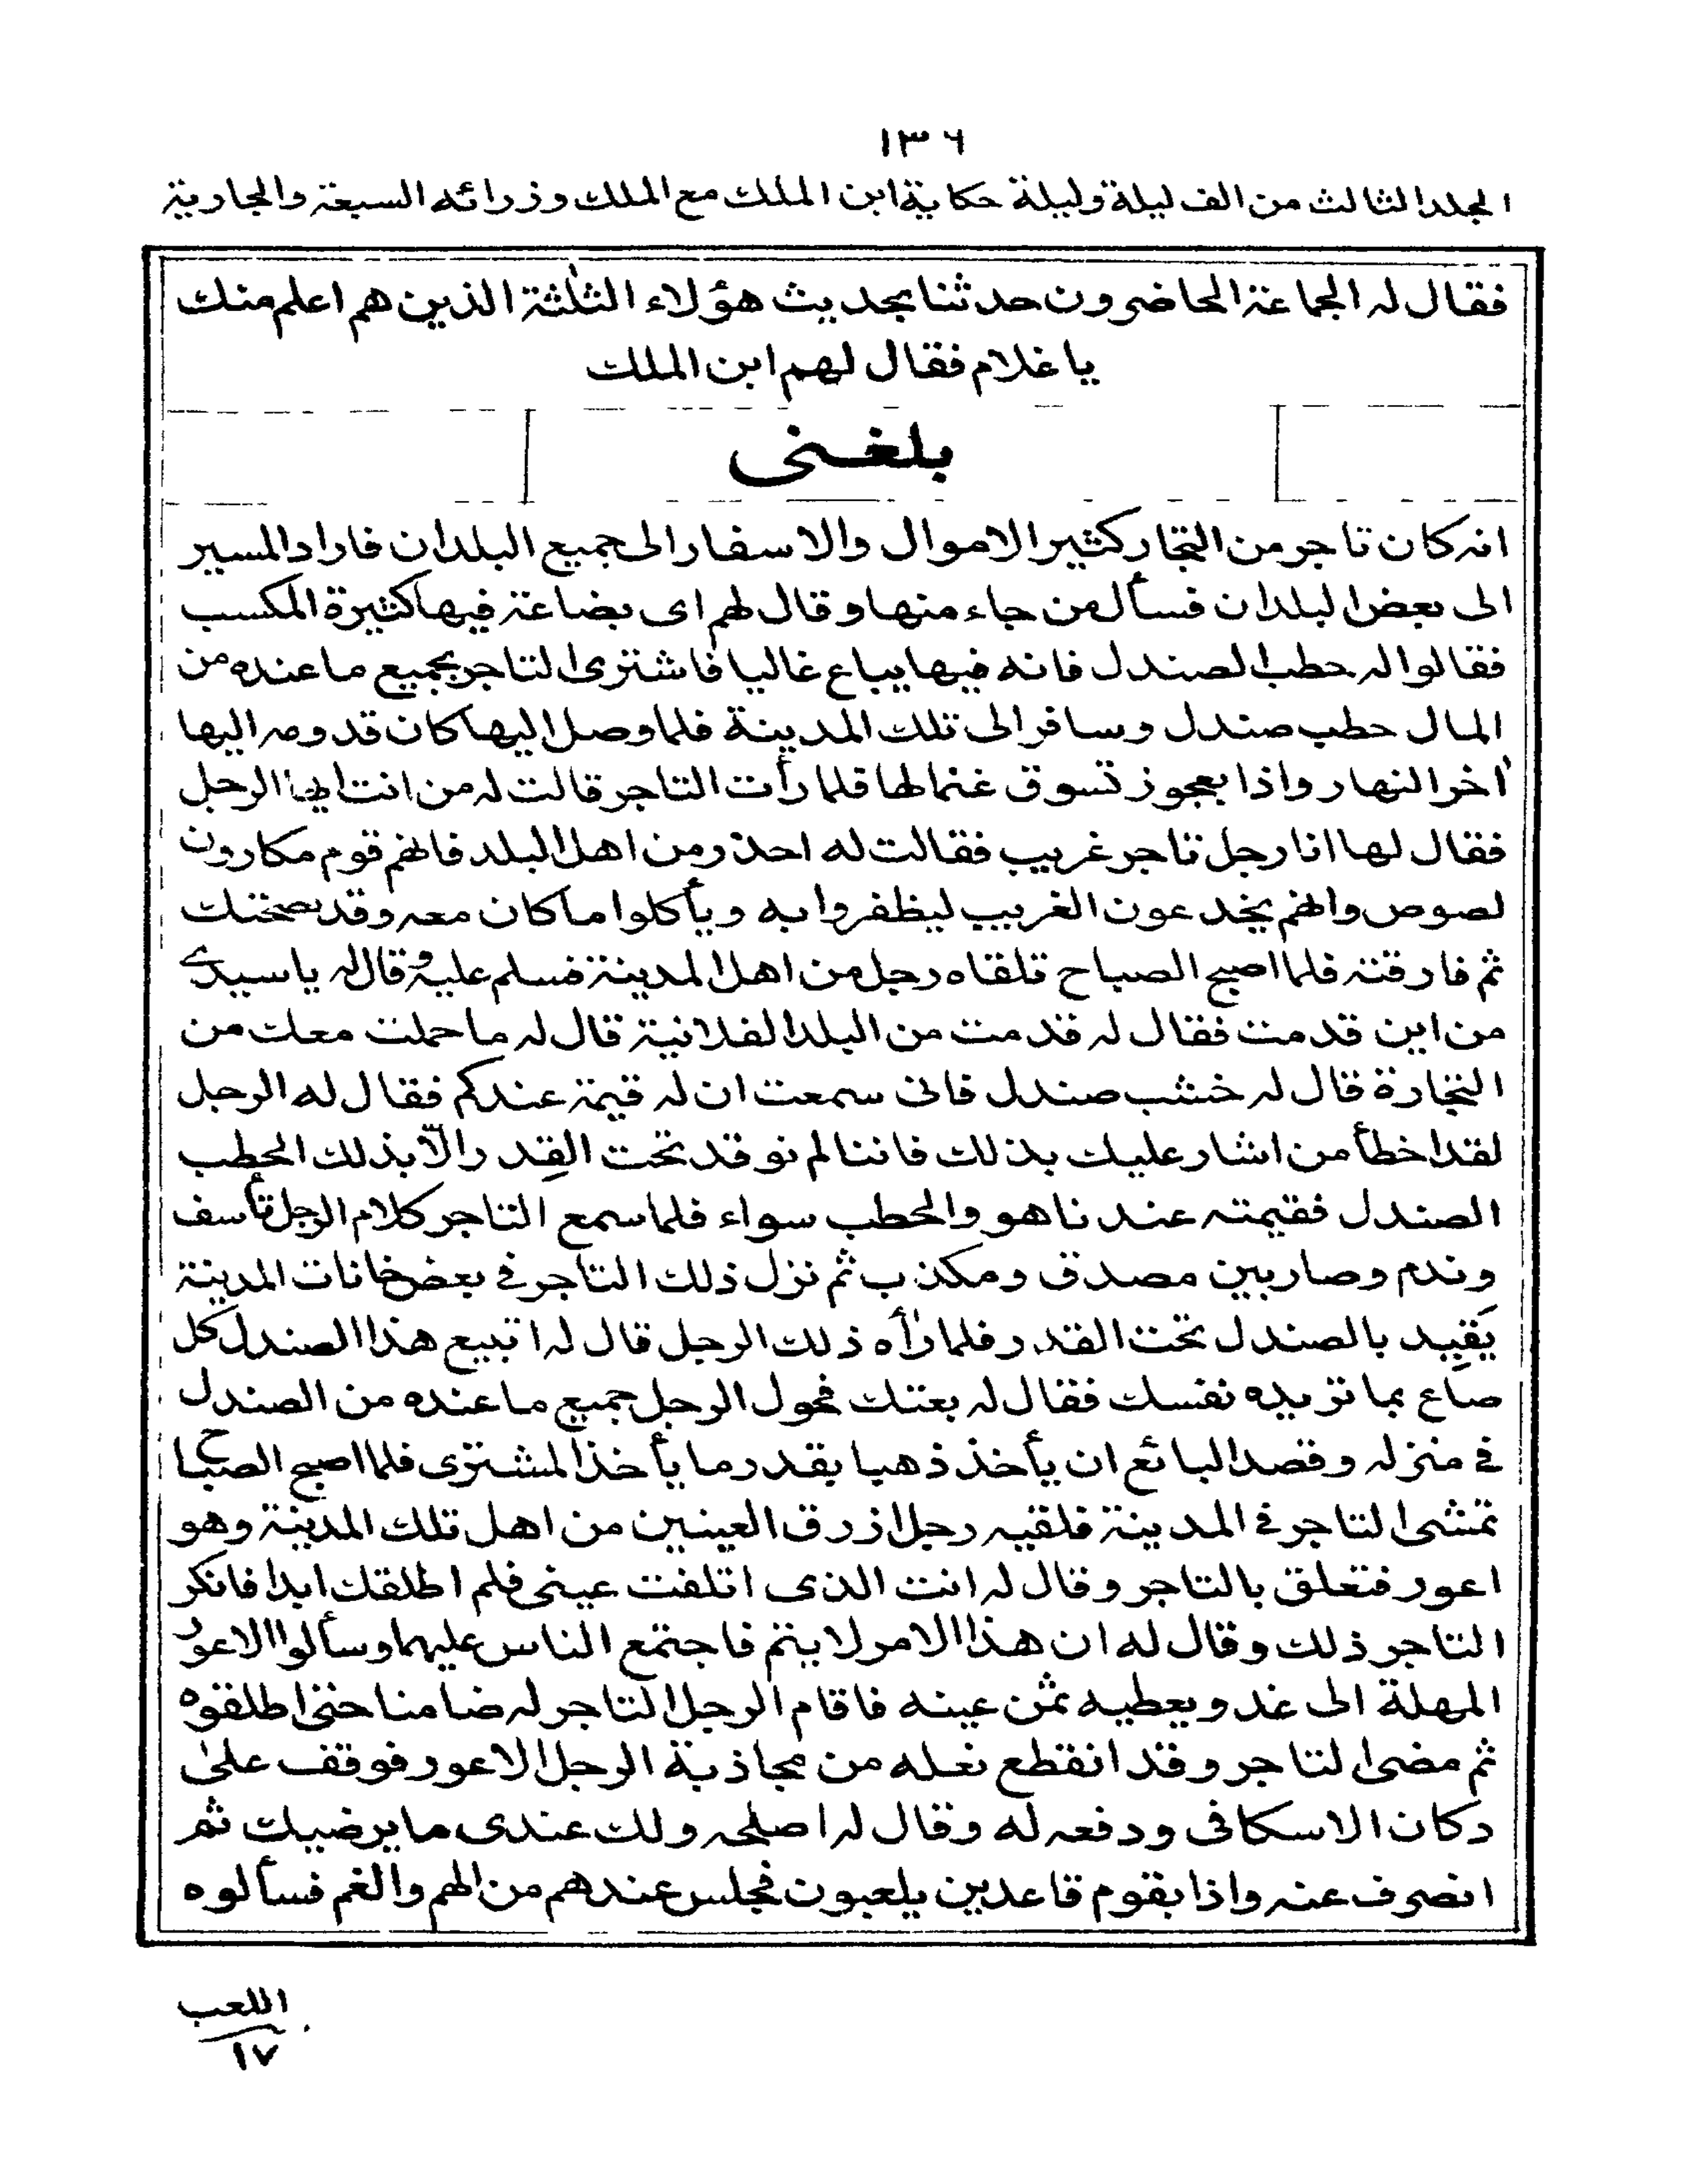 ١٣٦
المجلد الثالث من الف ليلة وليلة حكاية ابن الملك مع الملك وزرائه السبعة والجارية
فقال له الجماعة الحاضرون حدثنا بحديث هؤلاء الثلثة الذين هم اعلم منك
يا غلام فقال لهم ابن الملك
بلغنى
انه كان تاجر من التجار كثير الاموال والاسفار الى جميع البلدان فاراد المسير
الى بعض البلدان فسأل من جاء منها وقال لهم اى بضاعة فيها كثيرة المكسب
فقالوا له حطب الصندل فانه فيها يباع غاليا فاشترى التاجر بجميع ما عنده من
المال حطب صندل وسافر الى تلك المدينة فلما وصل اليها كان قدومه اليها
اخر النهار واذا بعجوز تسوق غنما لها فلما رأت التاجر قالت له من انت ايها الرجل
فقال لها انا رجل تاجر غريب فقالت له احذر من اهل البلد فانهم قوم مكارون
لصوص وانهم يخدعون الغريب ليظفروا به ويأكلوا ما كان معه وقد نصحتك
ثم فارقته فلما اصبح الصباح تلقاه رجل من اهل المدينة فسلم عليه وقال له يا سيدى
من اين قدمت فقال له قدمت من البلد الفلانية قال له ما حملت معك من
التجارة قال له خشب صندل فانى سمعت ان له قيمة عندكم فقال له الرجل
لقد اخطأ من اشار عليك بذلك فاننا لم نوقد تحت القِدر الّا بذلك الحطب
الصندل فقيمته عندنا هو والحطب سواء فلما سمع التاجر كلام الرجل تأسف
وندم وصار بين مصدق ومكذب ثم نزل ذلك التاجر فى بعض خانات المدينة
يَقِيد بالصندل تحت القدر فلما رأه ذلك الرجل قال له اتبيع هذا الصندل كل
صاع بما تريده نفسك فقال له بعتك فحول الرجل جميع ما عنده من الصندل
فى منزله وقصد البائع ان يأخذ ذهبا بقدر ما يأخذ المشترى فلما اصبح الصباح
تمشى التاجر فى المدينة فلقيه رجل ازرق العينين من اهل تلك المدينة وهو
اعور فتعلق بالتاجر وقال له انت الذى اتلفت عينى فلم اطلقك ابدا فانكر
التاجر ذلك وقال له ان هذا الامر لا يتم فاجتمع الناس عليهما وسألوا الاعور
المهلة الى غد ويعطيه ثمن عينه فاقام الرجل التاجر له ضامنا حتى اطلقوه
ثم مضى التاجر وقد انقطع نعله من مجاذبة الرجل الاعور فوقف على
دكان الاسكافى ودفعه له وقال له اصلحه ولك عندى ما يرضيك ثم
انصرف عنه واذا بقوم قاعدين يلعبون فجلس عندهم من الهم والغم فسألوه
اللعب
١٧